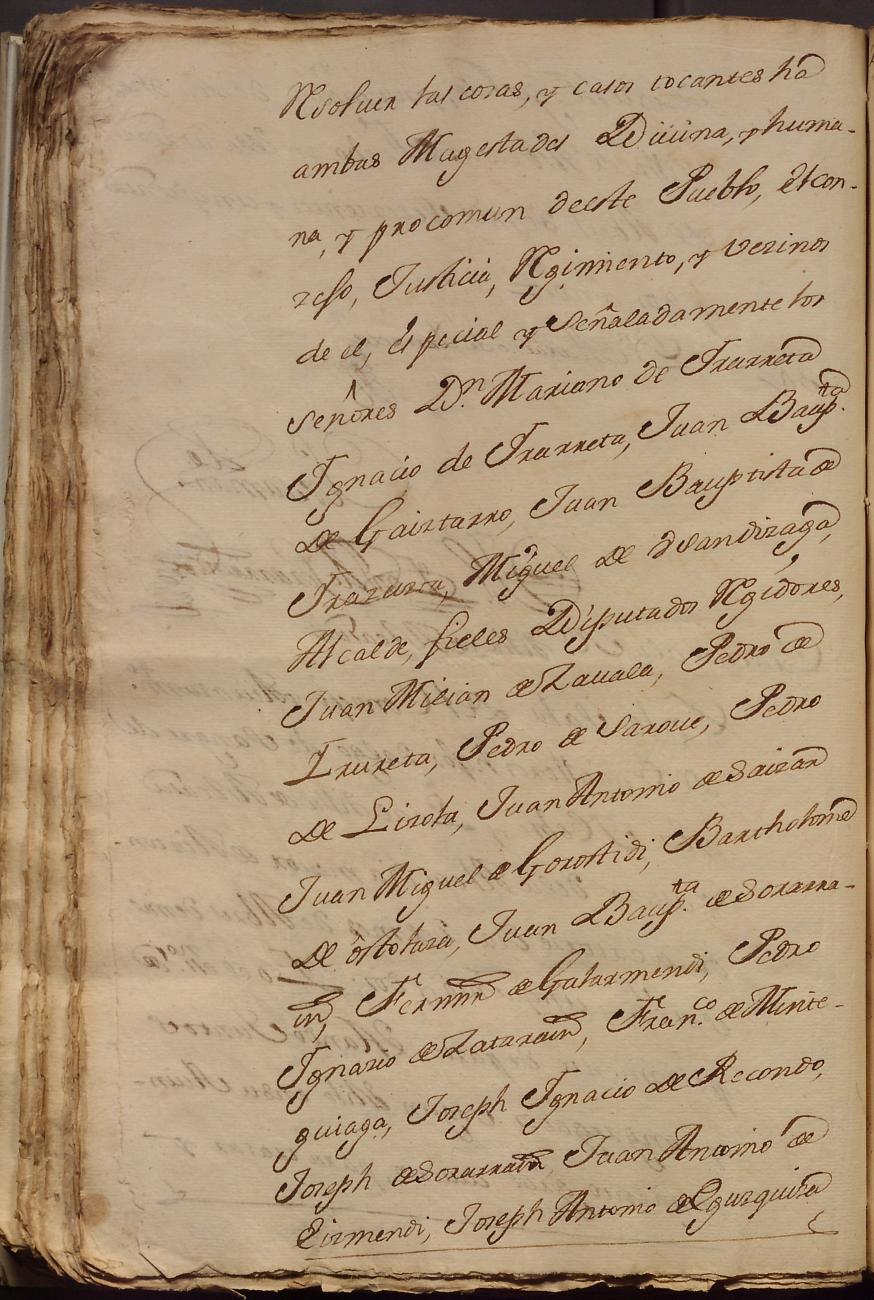 Rsoluer las cosas, y casos tocantes hā
ambas Magestades Diuina, y huma-
na, y procomun deeste Pueblo, el con-
zejo, Justicia, Rgimiento, y vezinos
de el, especial y señaladamente los
señores Dn. Mariano de Trarreta
Ygnacio de Trarreta, Juan Baupta.
de Gaiztarro, Juan Bauptista de
Trazusta, Miguel de Vsandizaga,
Alcalde, fieles Diputados Rgidores,
Juan Milian de Zauala, Pedro de
Irureta, Pedro de Saroue, Pedro
de Lizola, Juan Antonio de Saizar
Juan Miguel de Gorostidi, Bartholome
de ostolaza, Juan Baupta. de Sorarra-
in, Fermin de Galarmendi, Pedro
Ygnazio de Zatarain, Franco. de Minte-
guiaga, Joseph Ygnacio de Recondo,
Joseph de Sorarrain, Juan Antonio de
Eizmendi, Joseph Antonio de Egurquiza